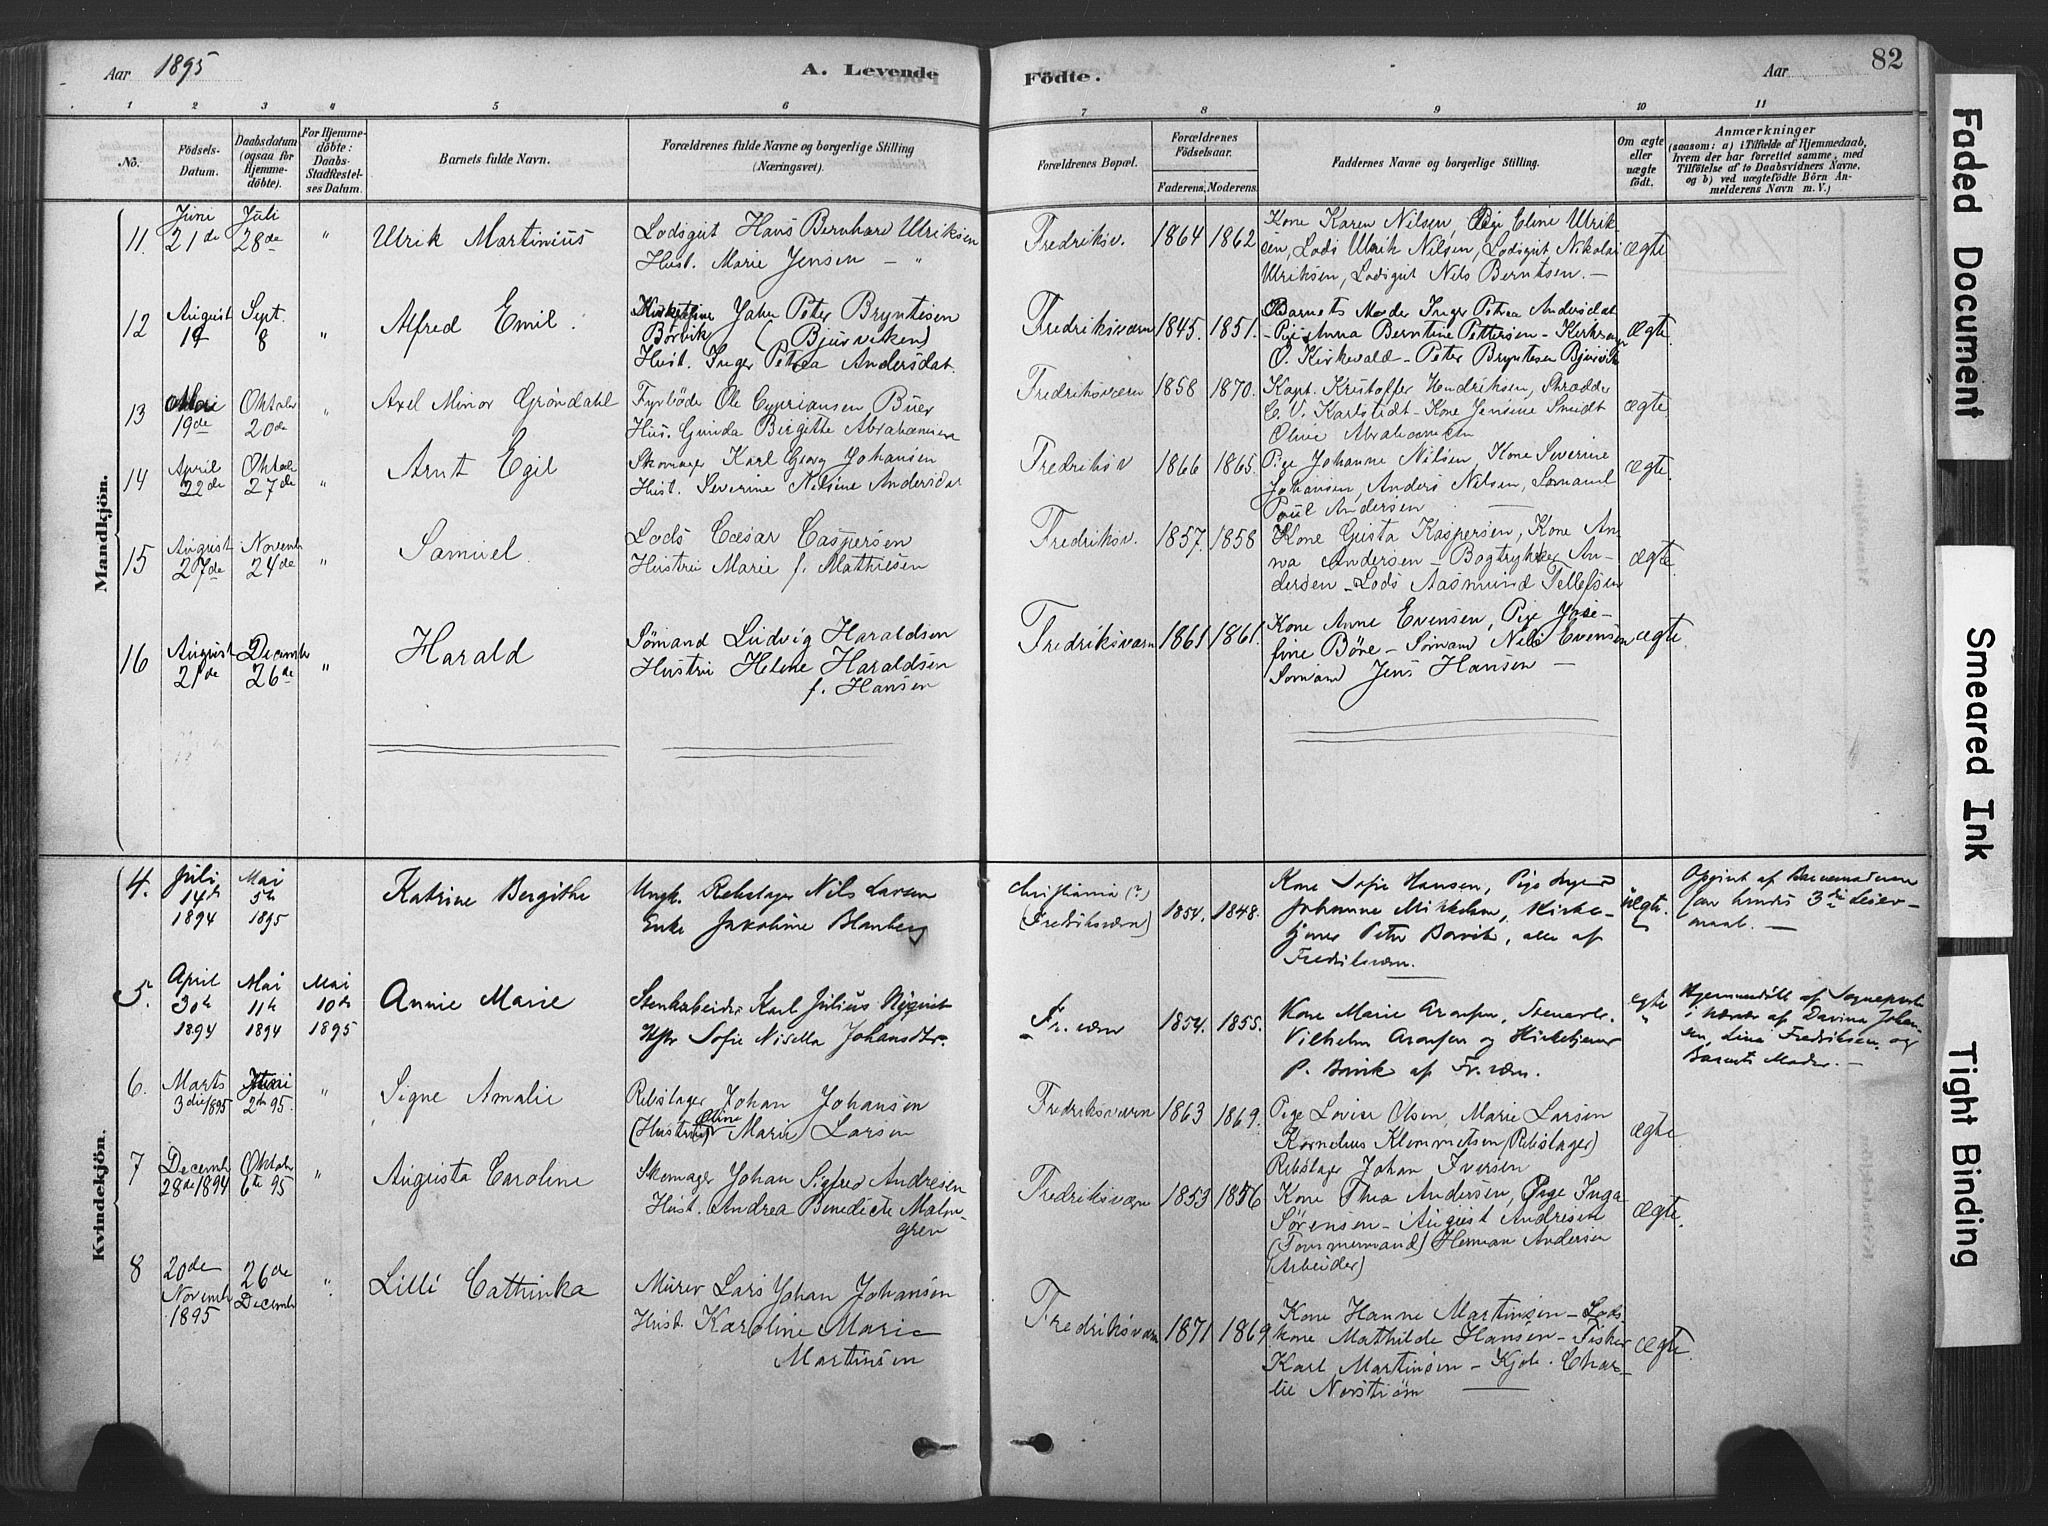 Aar 1895
A. Levende
Födte.
Aar
82
1 2 3 4 5 6 7 8 9 10 11
No.
Födsels-
Datum.
Daabsdatum
(ogsaa for
Hjemme-
döbte).
For Hjemme-
döbte:
Daabs-
Stadfæstel-
ses Datum.
Barnets fulde Navn.
Forældrenes fulde Navne og borgerlige Stilling
(Næringsvei).
Forældrenes Bopæl.
Forældrenes
Födselsaar.
Faderens. Moderens.
Faddernes Navne og borgerlige Stilling.
Om ægte
eller
uægte
födt.
Anmærkninger
(saasom: a) i Tilfælde af Hjemmedaab,
hvem der har forrettet samme, med
Tilföielse af to Daabsvidners Navne.
og b) ved uægtefödte Börn An-
melderens Navn m. V.)
Mandkjön.
11. Juni 21de Juli 28de " Ulrik Martinius
Lodsgut Hans Bernhard Ulriksen
Hust. Marie Jensen — "
Fredriksv. 1864 1862
Kone Karen Nilsen, Pige Eline Ulrik-
sen, Lods Ulrik Nilsen, Lodsgut Nikolai
Ulriksen, Lodsgut Nils Berntsen. —
ægte
12 August 19 Sept. 8 " Alfred Emil.
Kirketjener Johan Peter Bryntesen
Borvik (Bjurviken)
Hust. Inger Petrea Andersdat.
Fredriksværn 1845. 1851.
Barnets Moder Inger Petrea Andersdat
- Pige Anna Berntine Pettersen -
O. Kirkevald - Peter Bryntesen Bjurvik
ægte.
13 19de Oktober 20de " Axel Minor Gröndahl
Fyrböder Ole Cypriansen Buer
Hus. Gunda Birgitte Abrahamsen
Fredriksværn 1858 1870.
Kapt. Kristoffer Hendriksen, Skrædder
C. V. Karlstedt - Kone Jensine Smidt
Oline Abrahamsen
ægte
14 April 22de Oktob. 27de " Arnt Egil
Skomager Karl Georg Johansen
Hust. Severine Nilsine Andersdat
Fredriksv 1866 1865.
Pige Johanne Nilsen, Kone Severine
Johansen, Anders Nilsen, Sömand
Poul Andersen —
ægte.
15 August 27de Novemb 24de " Samuel.
Lods Cæsar Caspersen
Hustru Marie f. Mathisen
Fredriksv. 1857. 1858
Kone Gusta Kaspersen, Kone An-
na Andersen - Bogtrykker An-
dersen - Lods Aasmund Tellefsen
ægte.
16 August 21de Decemb 26de " Harald
Sömand Ludvig Haraldsen
Hustru Helene Haraldsen
f. Hansen
Fredriksværn 1861 1861.
Kone Anne Evensen, Pige Jose-
fine Böre - Sömand Nils Evensen
Sömand Jens Hansen —
ægte
Kvindekjön.
4. Juli 14de 1894 Mai 5te 1895 Katrine Bergithe
Ungk. Rebslager Nils Larsen
Enke Jakobine Blanberg
Christiania (?)
(Fredriksværn) 1854. 1848.
Kone Sofie Hansen, Pige
Johanne Mikkelsen, Kirke-
tjener Peter Borvik, alle af
Fredriksværn.
uægte.
Opgivet af Barnemoderen
for hendes 3die Leier-
maal. —
5. April 30te 1894 Mai 11te 1894 Mai 10de 1895 Annie Marie
Stenarbeider Karl Julius Nyquist
Hstr Sofie Nisella Johansdtr.
Fr.værn 1854. 1855.
Kone Marie Aronsen, Stenarb.
Vilhelm Aronsen og Kirketjener
P. Borvik af Fr.værn.
ægte "
Hjemmedöbt af Sogneprest
i Nærvær af Davina Johan-
sen, Lina Fredriksen og
Barnets Moder. —
6. Marts 3die 1895 Juni 2den 95. " Signe Amalie
Rebslager Johan Johansen
(Hustru) Oline Marie Larsen
Fredriksværn 1863 1869.
Pige Lovise Olsen, Marie Larsen
Kornelius Klemmetsen (Rebslager)
Rebslager Johan Iversen
ægte.
7 Decemb 28de 1894 Oktober 6te 95 " Augusta Caroline
Skomager Johan Sigfred Andresen
Hust. Andrea Benedicte Malm-
gren
Fredriksværn 1853 1856
Kone Thea Andersen, Pige Inga
Sörensen - August Andresen
(Tömmermand) Herman Andersen
(Arbeider)
ægte.
8 20de Novemb 1895 26de Decemb " Lilli Cathinka
Murer Lars Johan Johansen
Hust. Karoline Marie
Martinsen
Fredriksværn 1871 1869
Kone Hanne Martinsen - Lods-
kone Mathilde Hansen - Fisker
Karl Martinsen - Kjöb. Char-
lie Norström —
ægte.
Faded Document
Smeared Ink
Tight Binding